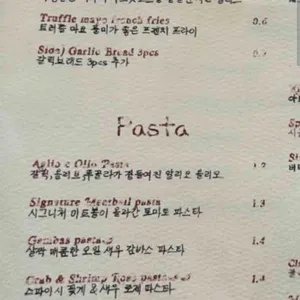 Truffle mayo french fries 0.6
트러플 마요 풍미가 좋은 프렌치 프라이
Side) Garlic Bread 3pcs
갈릭브레드 3pcs 추가
Pasta
Aglio e Olio Pasta 1.2
갈릭,올리브 루꼴라가 곁들여진 알리오 올리오
Signature Meetball pasta 1.3
시그니처 미트볼이 올라간 토마토 파스타
Gambas pasta 1.4
살짝 매콤한 오일 새우 감바스 파스타
Crab & Shrimp Rose pasta 1.4
스파이시 꽃게 & 새우 로제 파스타